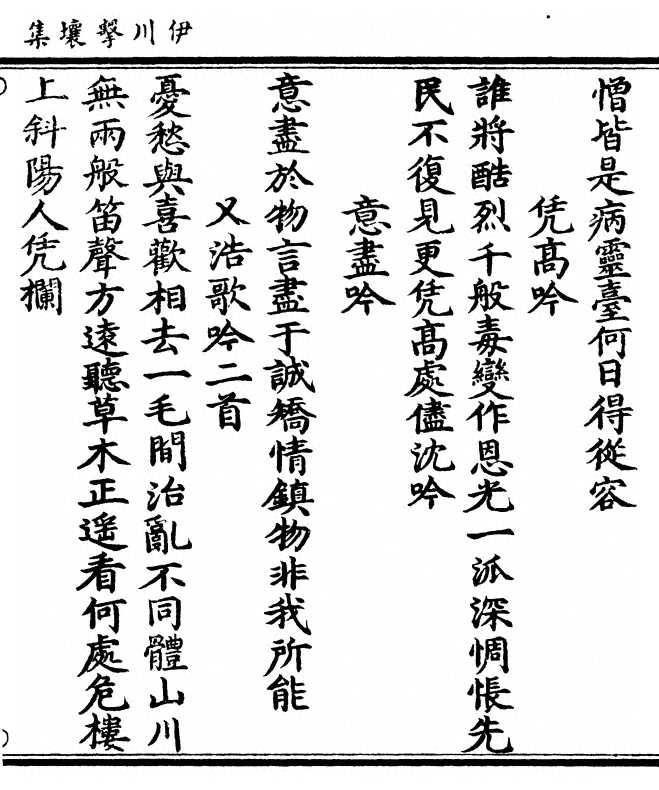 伊川擊壤集
憎皆是病靈臺何日得從容
凭髙吟
誰將酷烈千般毒變作恩光一派深惆悵先
民不復見更凭髙處儘沈吟
意盡吟
意盡於物言盡于誠矯情鎮物非我所能
又浩歌吟二首
憂愁與喜歡相去一毛間治亂不同體山川
無兩般笛聲方遠聽草木正遥看何處危樓
上斜陽人凭欄